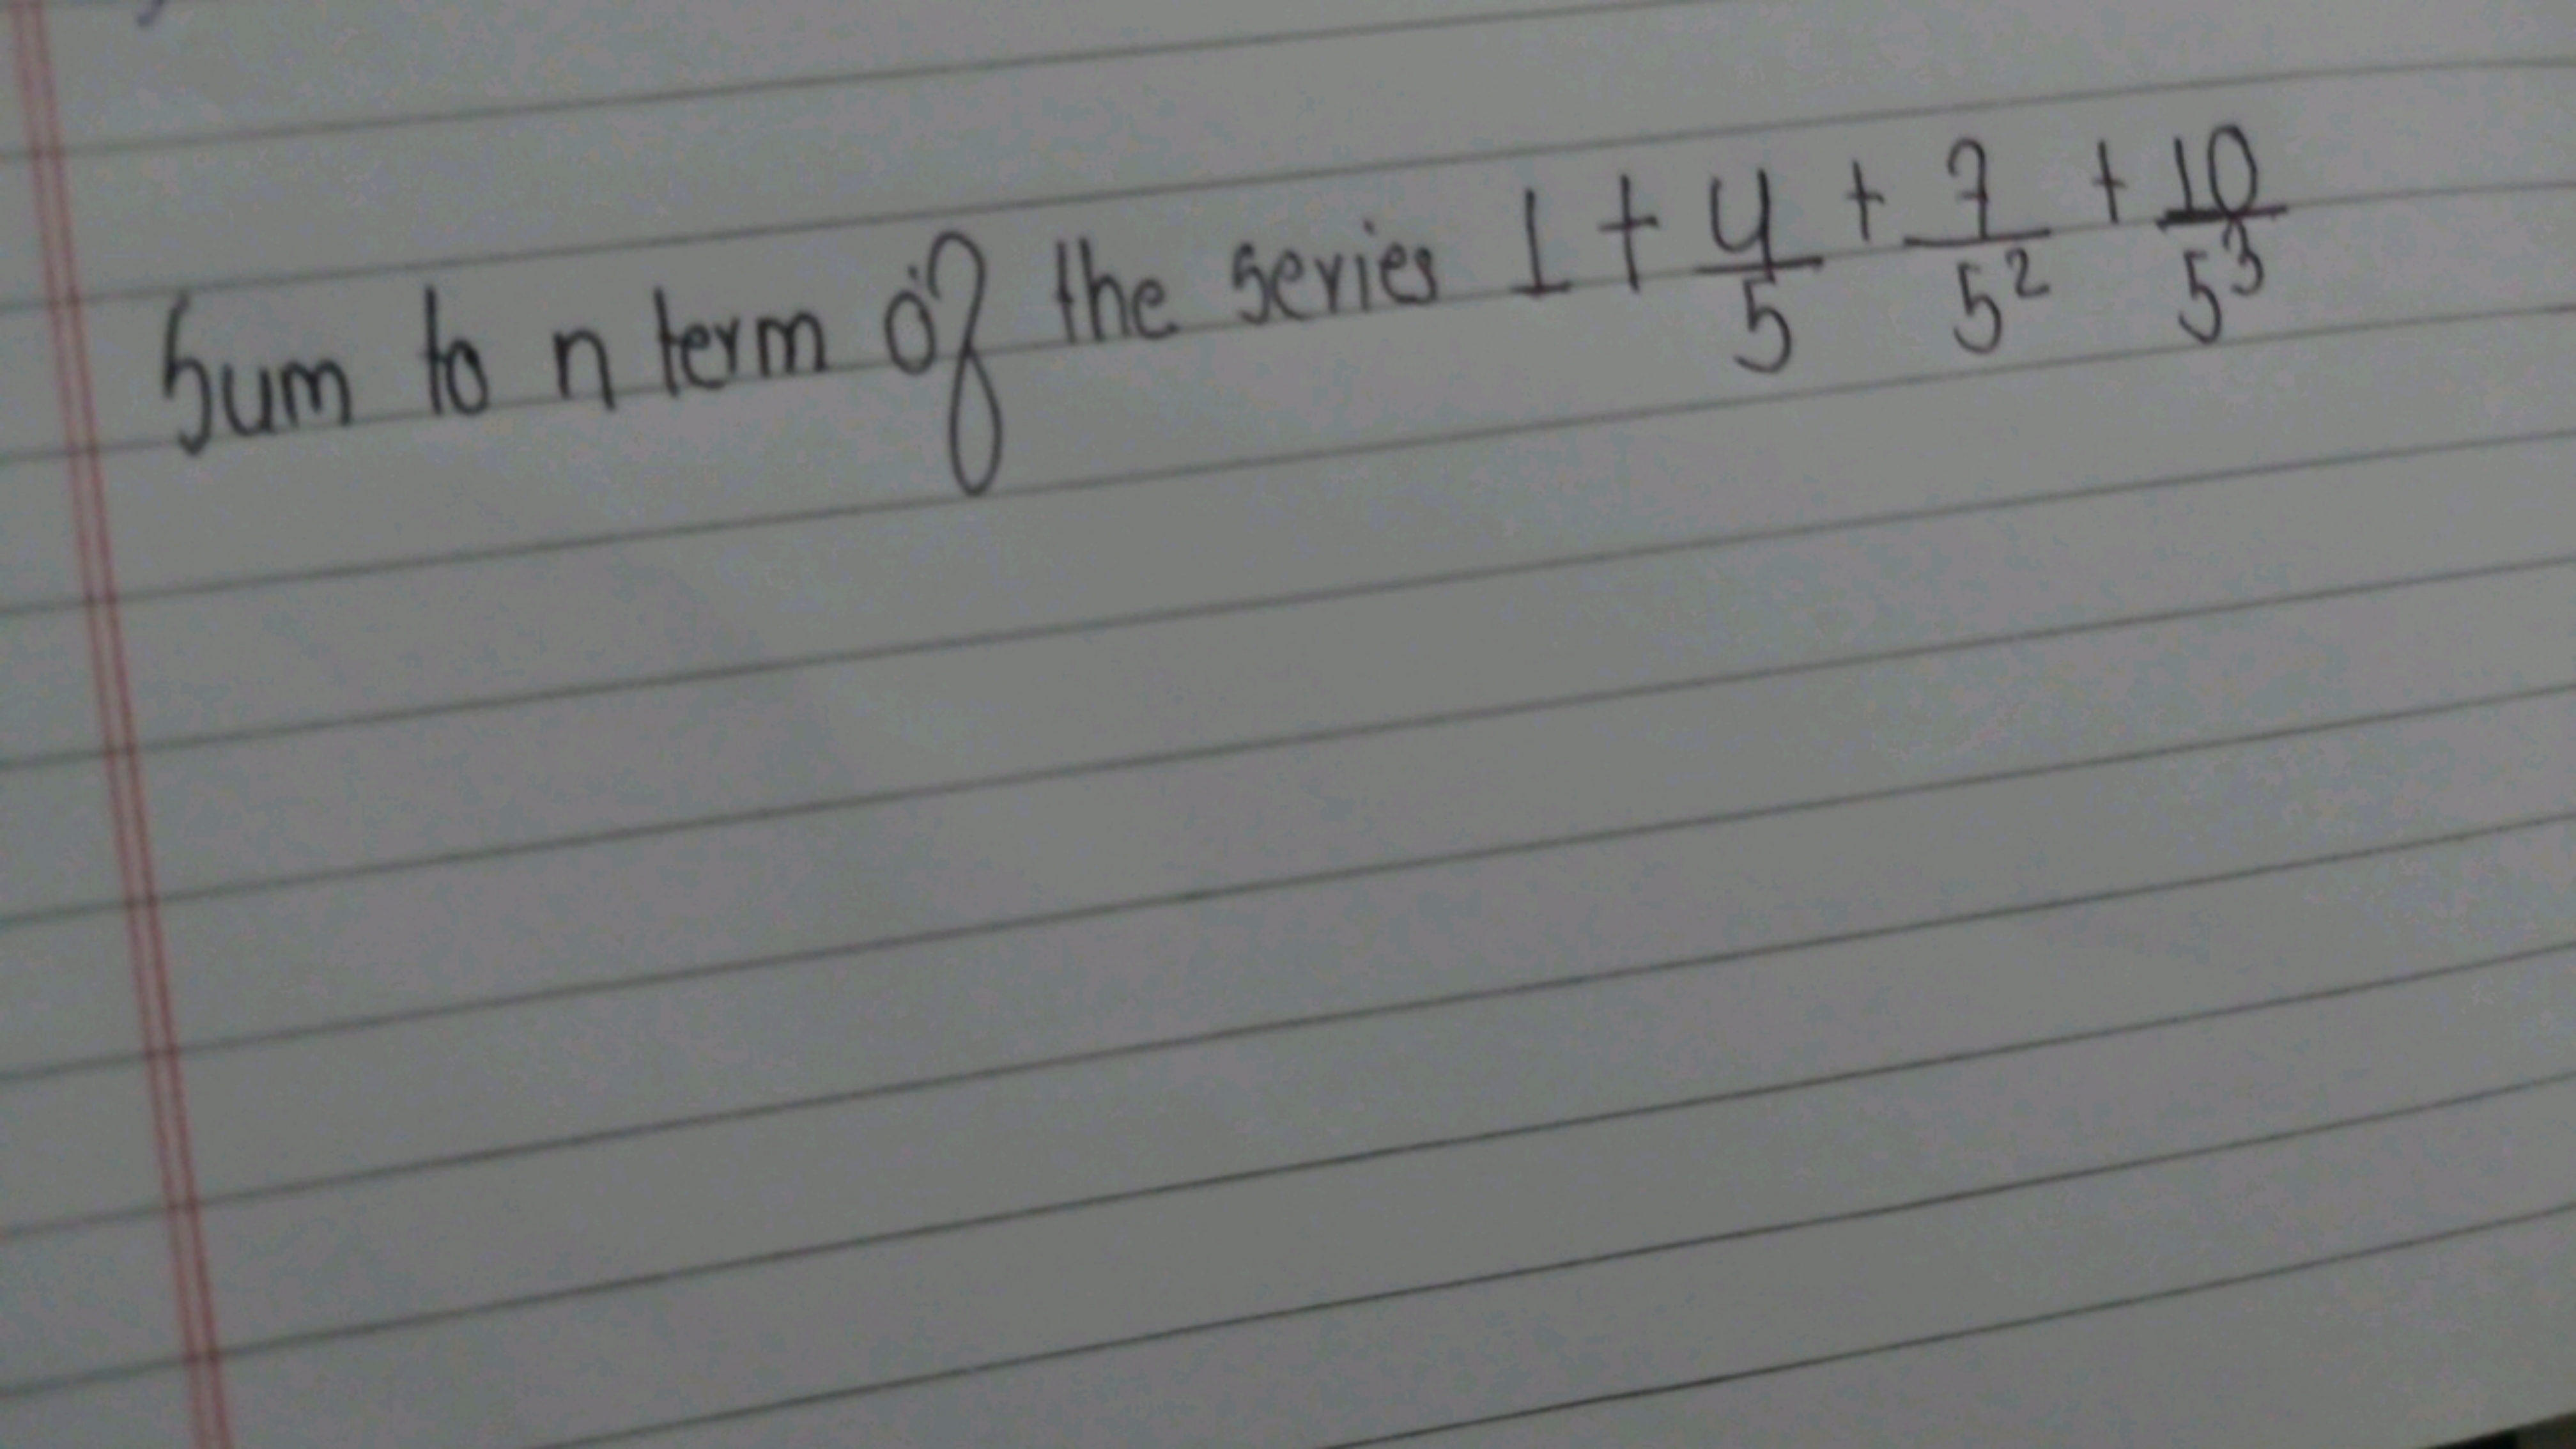 Sum to n term of the series 1 + 4/5 + 7/5² + 10/5³